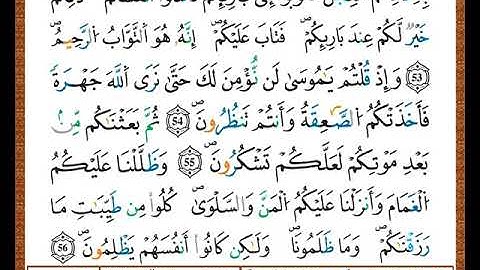 خَيْرٌ لَّكُمْ عِندَ بَارِئِكُمْ فَتَابَ عَلَيْكُمْ ۖ إِنَّهُۥ هُوَ ٱلتَّوَّابُ ٱلرَّحِيمُ
٥٣ وَإِذْ قُلْتُمْ يَٰمُوسَىٰ لَن نُّؤْمِنَ لَكَ حَتَّىٰ نَرَى ٱللَّهَ جَهْرَةً
فَأَخَذَتْكُمُ ٱلصَّٰعِقَةُ وَأَنتُمْ تَنظُرُونَ ۖ ٥٤ ثُمَّ بَعَثْنَٰكُم مِّنۢ
بَعْدِ مَوْتِكُمْ لَعَلَّكُمْ تَشْكُرُونَ ۖ ٥٥ وَظَلَّلْنَا عَلَيْكُمُ
ٱلْغَمَامَ وَأَنزَلْنَا عَلَيْكُمُ ٱلْمَنَّ وَٱلسَّلْوَىٰ ۖ كُلُوا۟ مِن طَيِّبَٰتِ مَا
رَزَقْنَٰكُمْ ۖ وَمَا ظَلَمُونَا ۖ وَلَٰكِن كَانُوٓا۟ أَنفُسَهُمْ يَظْلِمُونَ ۖ ٥٦